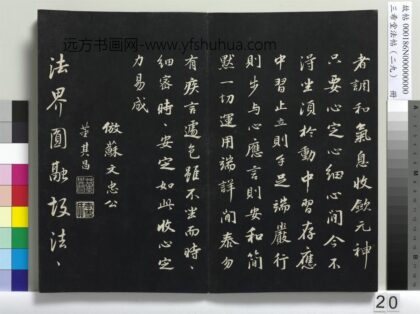 者調和氣息收歛元神
只要心定心細心閒今不
得坐須於動中習存應
中習止立則手足端嚴行
則步与心應言則安和簡
默一切運用端詳閒泰勿
有疾言遽色雖不坐而時、
細密時、安定如此收心定
力易成
倣蘇文忠公
董其昌
法界圓融
法、
远方书画网-www.yfshuhua.com
故帖 000186N000000000
三希堂法帖(二九) 冊
20